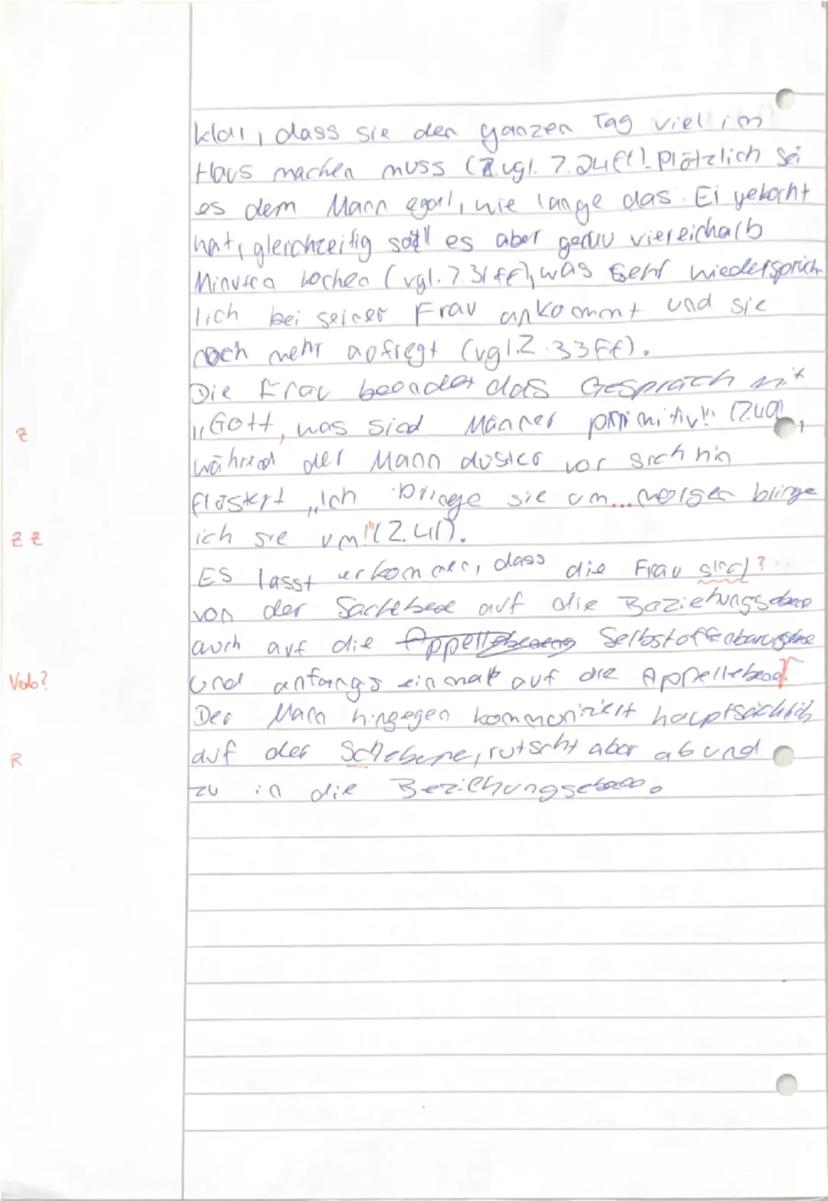 klar, dass sie den ganzen Tag viel im
Haus machen muss (vgl. Z. 24ff). Plötzlich sei
es dem Mann egal, wie lange das Ei gekocht
hat, gleichzeitig soll es aber genau viereinhalb
Minuten kochen (vgl. Z. 31ff), was sehr wiedersprüch
lich bei seiner Frau ankommt und sie
noch mehr aufregt (vgl. Z. 33ff).
Die Frau beendet das Gespräch mit
Z „Gott, was sind Männer primitiv!" (Z.40),
während der Mann düster vor sich hin
flüstert „Ich bringe sie um... morgen bringe
Z Z ich sie um!" (Z.41).
Es lässt erkennen, dass die Frau sind?
von der Sachebene auf die Beziehungsebene
auch auf die Appellebene Selbstoffenbarungsebene
Verb? und anfangs einmal auf die Appellebene
Der Mann hingegen kommuniziert hauptsächlich
R auf der Schebene, rutscht aber ab und
zu in die Beziehungsebene.